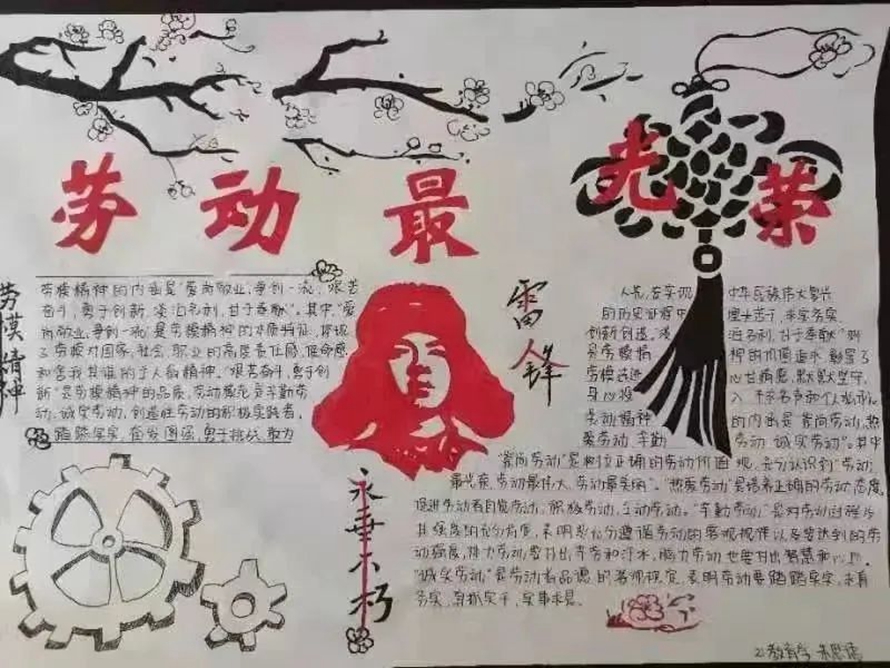 劳动最光荣
劳模精神
劳模精神的内涵是"爱岗敬业,争创一流,艰苦
奋斗,勇于创新,淡泊名利,甘于奉献"。其中,"爱
岗敬业,争创一流"是劳模精神的本质特征,体现
了劳模对国家、社会、职业的高度责任感、使命感
和舍我其谁的主人翁精神。"艰苦奋斗,勇于创
新"是劳模精神的品质,劳动模范是辛勤劳
动、诚实劳动、创造性劳动的积极实践者,
踏踏实实,奋发图强,勇于挑战,敢为
雷锋
永垂不朽
人先,在实现 中华民族伟大复兴
的历史征程中 埋头苦干,求实务实,
创新创造。淡 泊名利,甘于奉献"则
劳模先进 心甘情愿,默默坚守,
身心投 入
劳动精神 的内涵是"崇尚劳动,热
爱劳动,辛勤 劳动,诚实劳动"。其中
"崇尚劳动"是 正确的劳动价值观,充分认识到"劳动
最光荣,劳动最伟大,劳动最美丽"。"热爱劳动"是培养正确的劳动态度,
促进劳动者自觉劳动,积极劳动,主动劳动。"辛勤劳动"是对劳动过程与
其强度的充分肯定,表明要充分遵循劳动的客观规律以及要达到的劳
动强度,体力劳动要付出辛劳和汗水,脑力劳动也要付出智慧和心血。
"诚实劳动"是劳动者品德的客观规定,表明劳动要踏踏实实,求真
务实,真抓实干,实事求是。